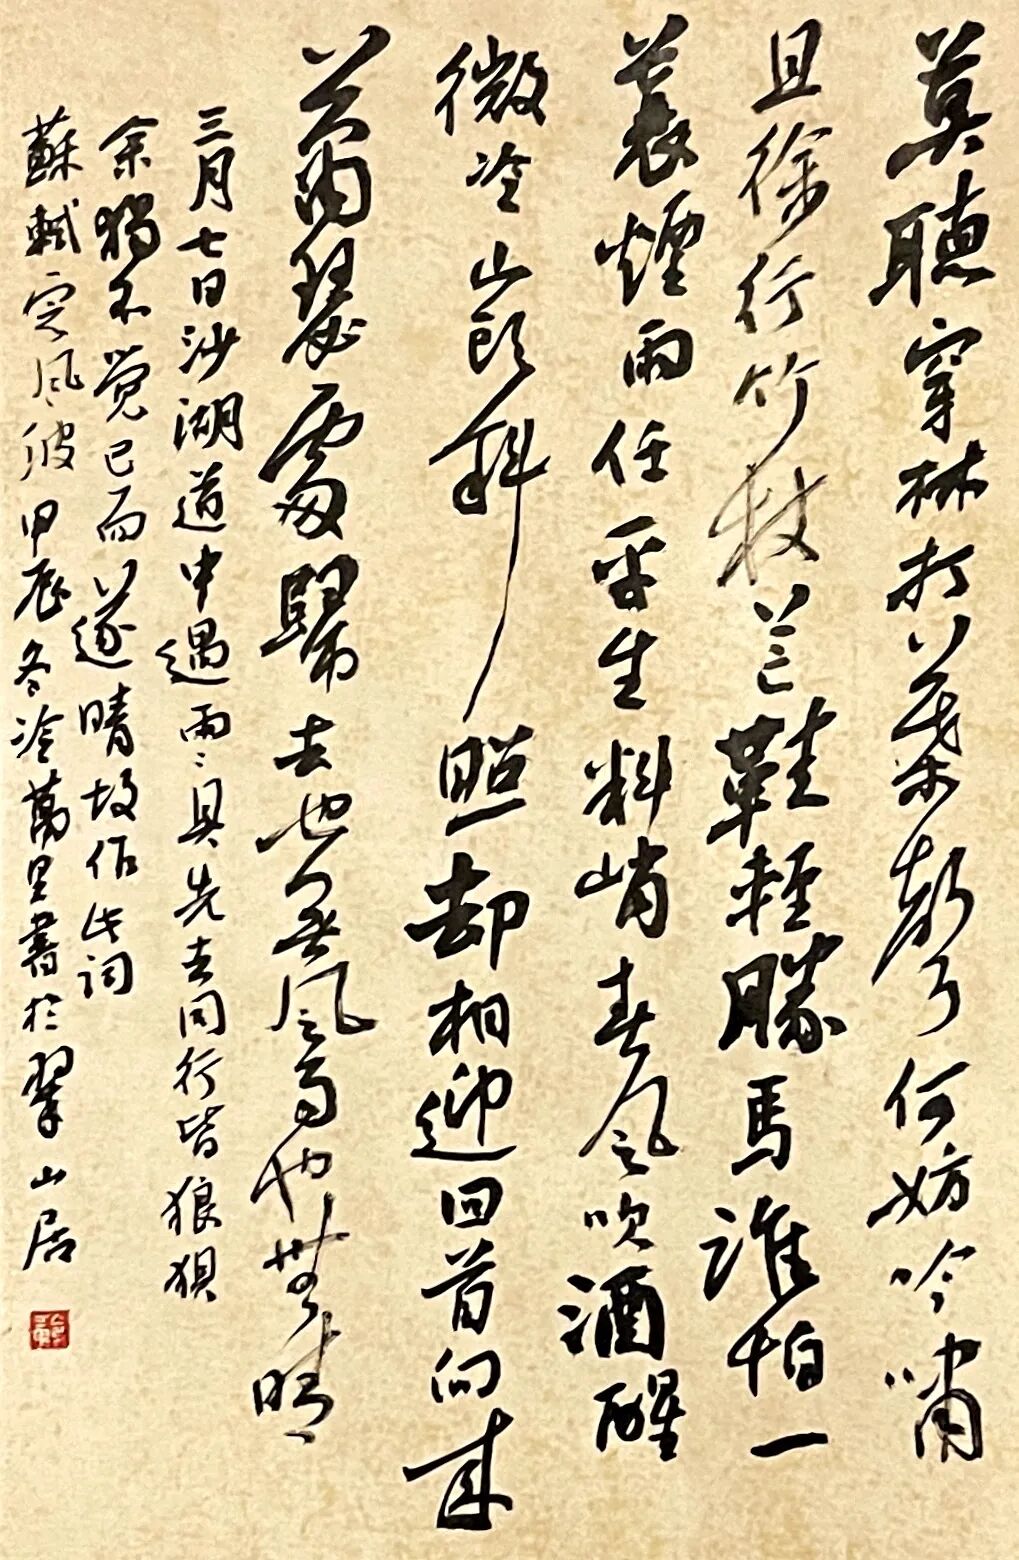 莫聽穿林打葉聲何妨吟嘯
且徐行竹杖芒鞋輕勝馬誰怕一
蓑煙雨任平生料峭春風吹酒醒
微冷山頭斜照却相迎回首向來
蕭瑟處歸去也無風雨也無晴
三月七日沙湖道中遇雨〻具先去同行皆狼狽
余獨不覺已而遂晴故作此詞
蘇軾定風波甲辰冬冷萬里書於翠山居